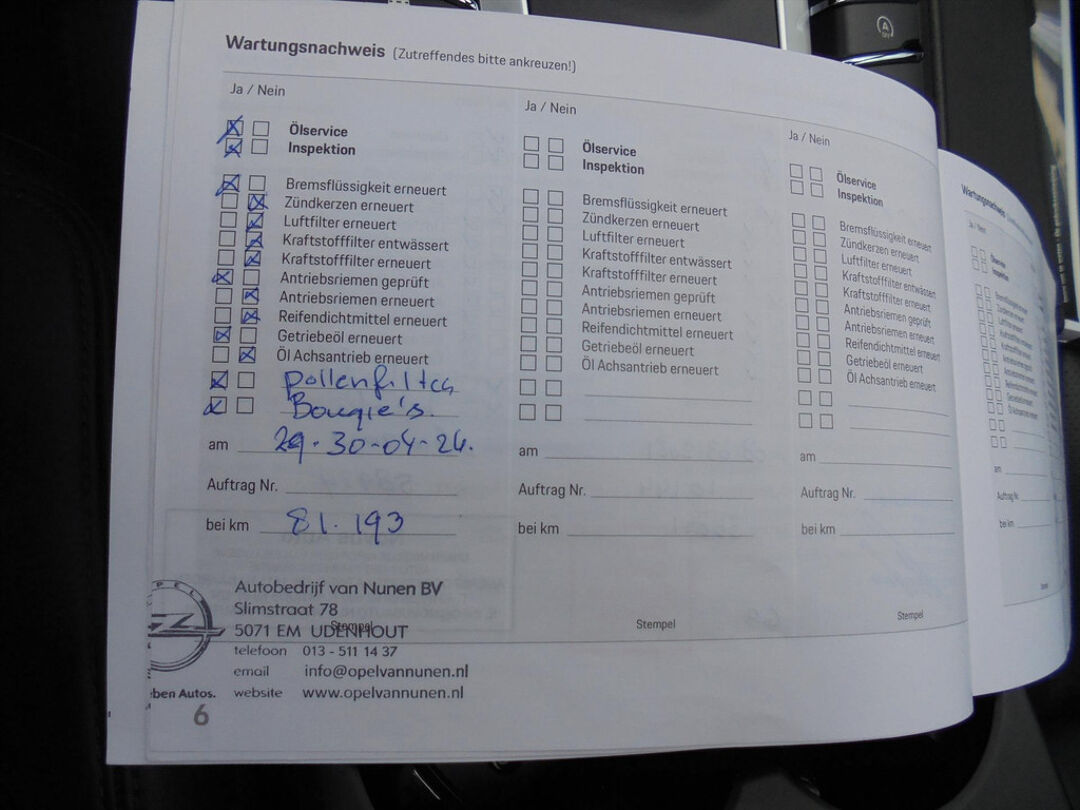 Wartungsnachweis (Zutreffendes bitte ankreuzen!)
Ja / Nein
Ölservice
Inspektion
Bremsflüssigkeit erneuert
Zündkerzen erneuert
Luftfilter erneuert
Kraftstofffilter entwässert
Kraftstofffilter erneuert
Antriebsriemen geprüft
Antriebsriemen erneuert
Reifendichtmittel erneuert
Getriebeöl erneuert
Öl Achsantrieb erneuert
pollenfilter
Bougie's.
am 29-30-04-24.
Auftrag Nr.
bei km 81.193
Stempel
OPEL
Autobedrijf van Nunen BV
Slimstraat 78
5071 EM UDENHOUT
telefoon 013 - 511 14 37
email info@opelvannunen.nl
website www.opelvannunen.nl
ben Autos.
6
Ja / Nein
Ölservice
Inspektion
Bremsflüssigkeit erneuert
Zündkerzen erneuert
Luftfilter erneuert
Kraftstofffilter entwässert
Kraftstofffilter erneuert
Antriebsriemen geprüft
Antriebsriemen erneuert
Reifendichtmittel erneuert
Getriebeöl erneuert
Öl Achsantrieb erneuert
am
Auftrag Nr.
bei km
Stempel
Ja / Nein
Ölservice
Inspektion
Bremsflüssigkeit erneuert
Zündkerzen erneuert
Luftfilter erneuert
Kraftstofffilter entwässert
Kraftstofffilter erneuert
Antriebsriemen geprüft
Antriebsriemen erneuert
Reifendichtmittel erneuert
Getriebeöl erneuert
Öl Achsantrieb erneuert
am
Auftrag Nr.
bei km
Stempel
Wartungsnachweis
Ja / Nein
Ölservice
Inspektion
Bremsflüssigkeit erneuert
Zündkerzen erneuert
Luftfilter erneuert
Kraftstofffilter entwässert
Kraftstofffilter erneuert
Antriebsriemen geprüft
Antriebsriemen erneuert
Reifendichtmittel erneuert
Getriebeöl erneuert
Öl Achsantrieb erneuert
am
Auftrag Nr.
bei km